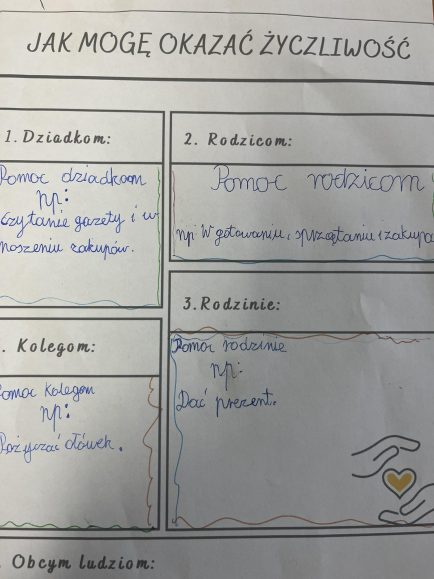 JAK MOGĘ OKAZAĆ ŻYCZLIWOŚĆ
1. Dziadkom:
Pomoc dziadkom
np:
czytanie gazety i w
noszeniu zakupów.
2. Rodzicom:
Pomoc rodzicom
np W gotowaniu, sprzątaniu i zakupa
3. Rodzinie:
Pomoc rodzinie
np:
Dać prezent.
. Kolegom:
omoc kolegom
np:
Pożyczać ołówek.
. Obcym ludziom: